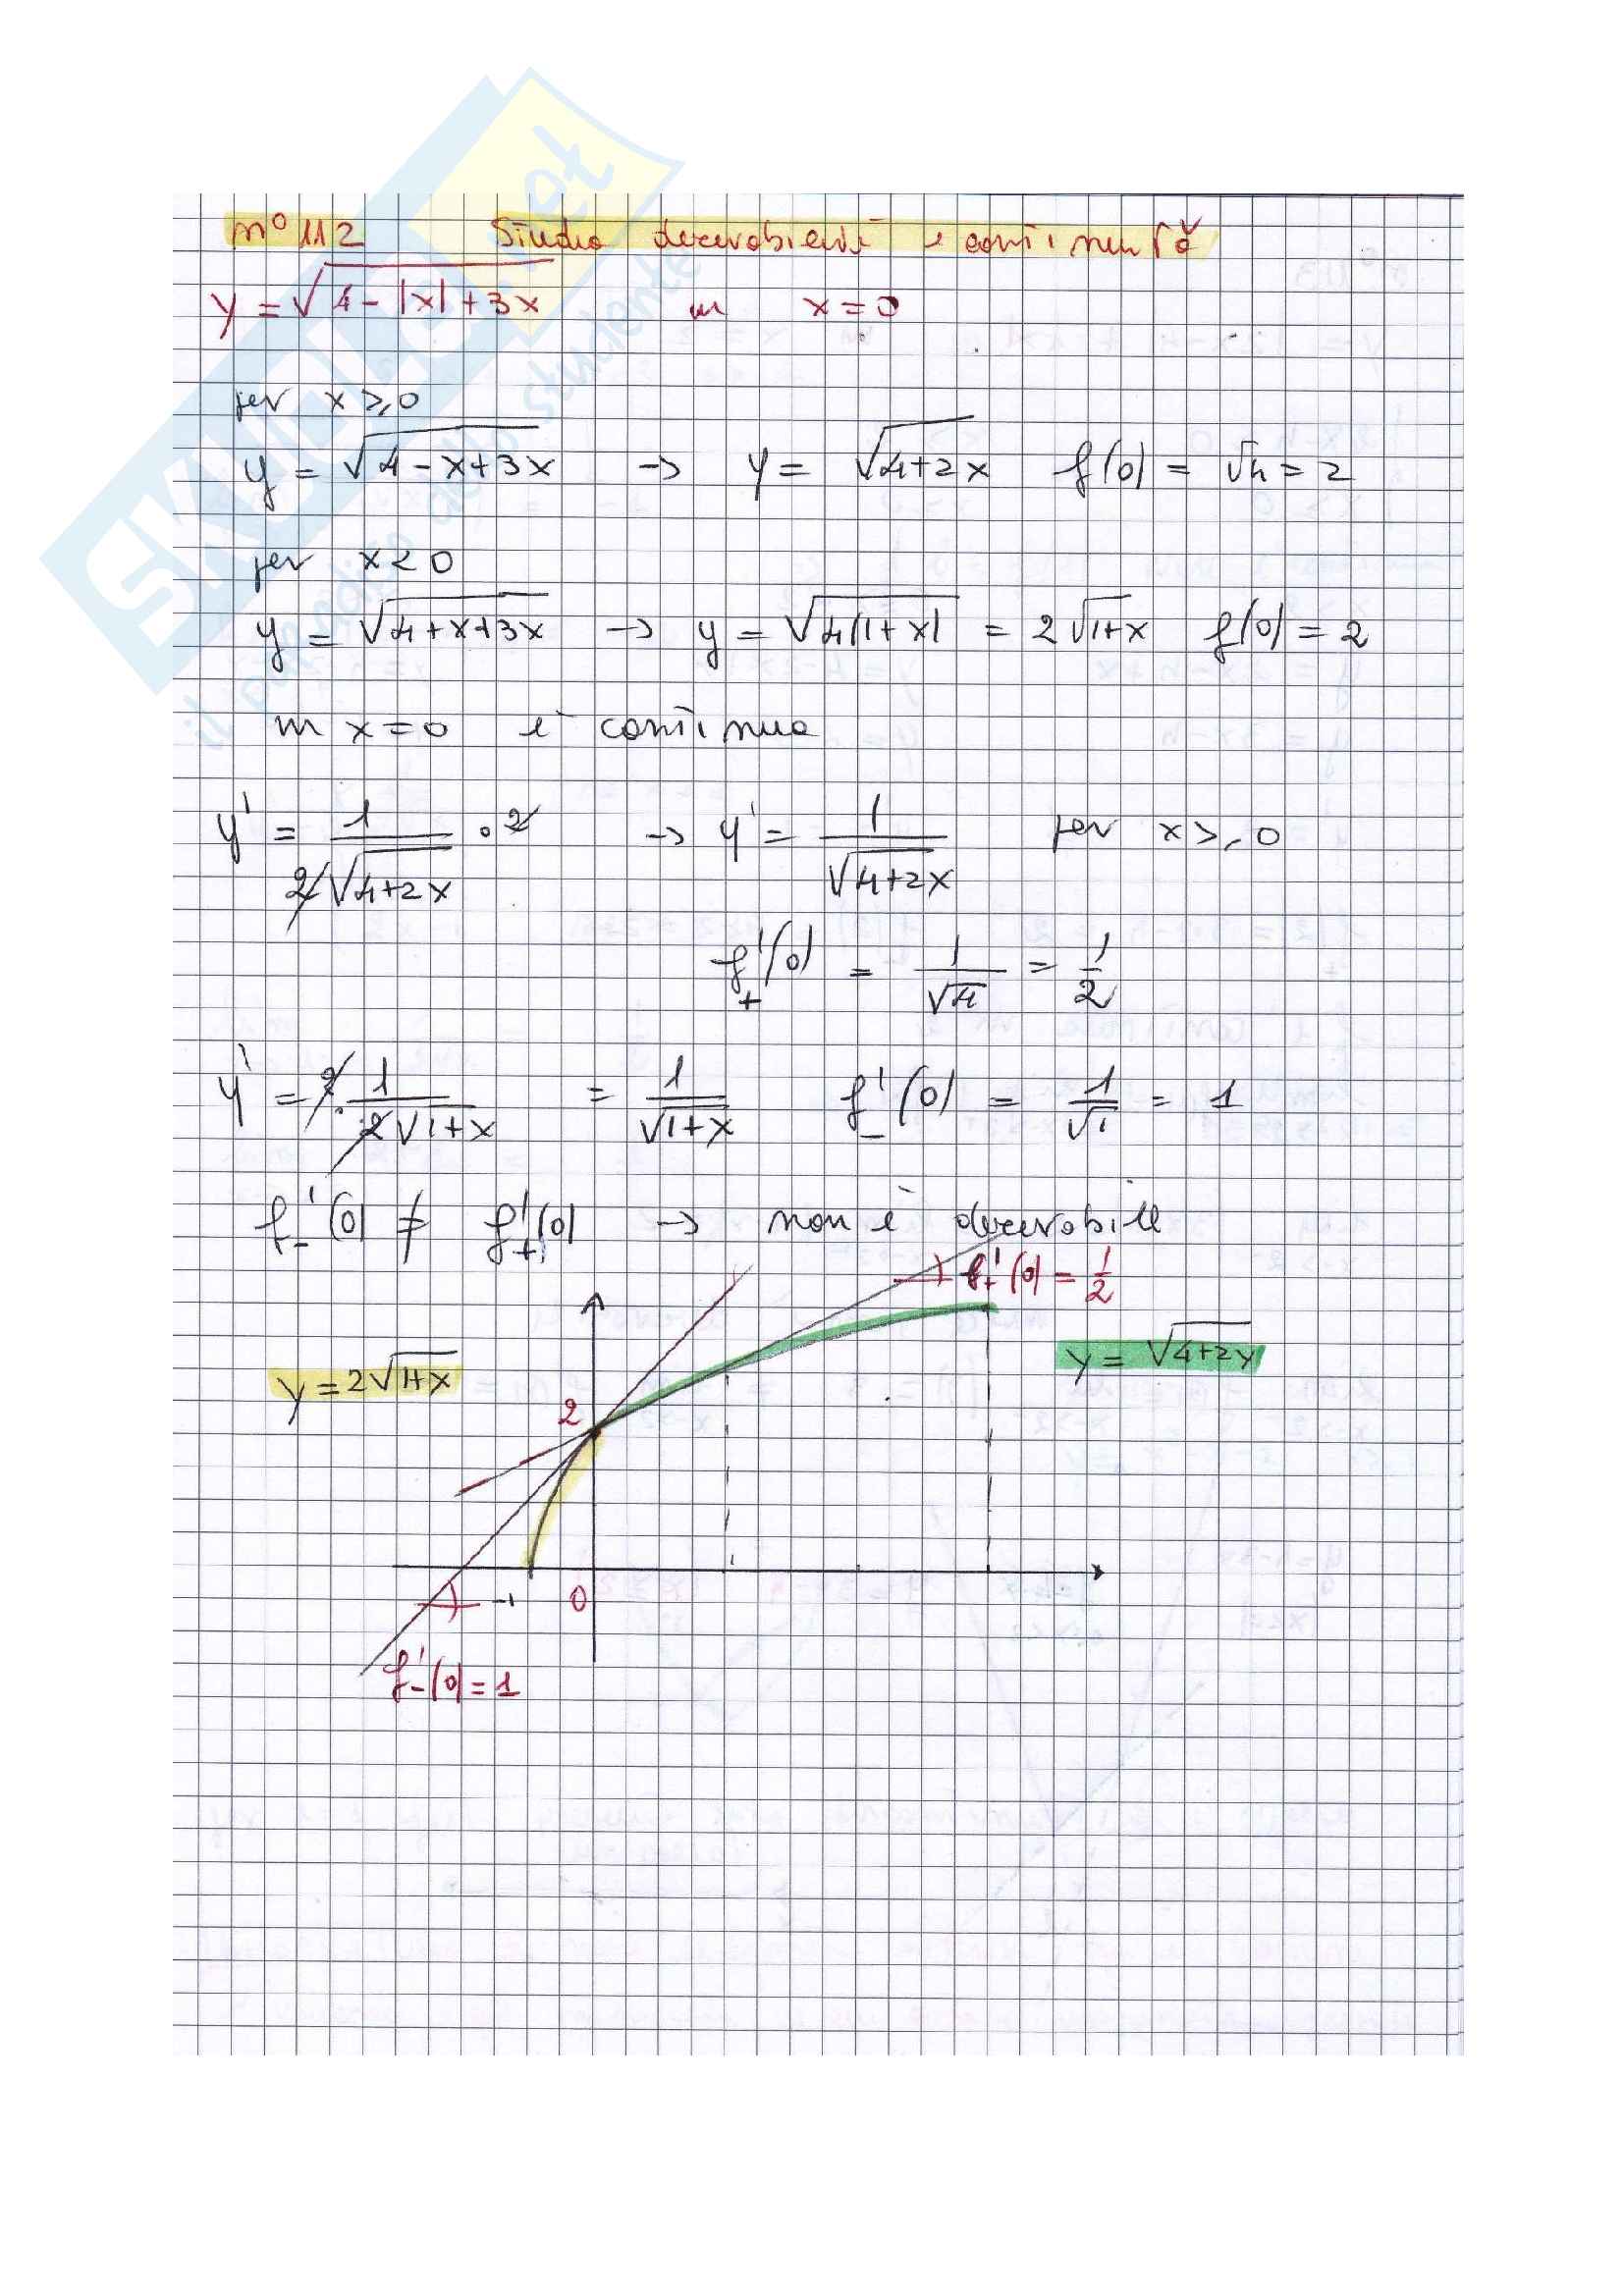 n° 112 Studio derivabilità e continuità
y = √4-|x|+3x in x=0
per x ≥ 0
y = √4-x+3x → y = √4+2x f(0) = √4 = 2
per x < 0
y = √4+x+3x → y = √4(1+x) = 2√1+x f(0) = 2
in x=0 è continua
y' = 1/2√4+2x · 2 → y' = 1/√4+2x per x ≥ 0
f'+(0) = 1/√4 = 1/2
y' = 2 · 1/2√1+x = 1/√1+x f'-(0) = 1/√1 = 1
f'-(0) ≠ f'+(0) → non è derivabile
f'+(0) = 1/2
y = √4+2x
y = 2√1+x
2
-1 0
f'-(0) = 1
SKUOLA.net
il paradiso dello studente